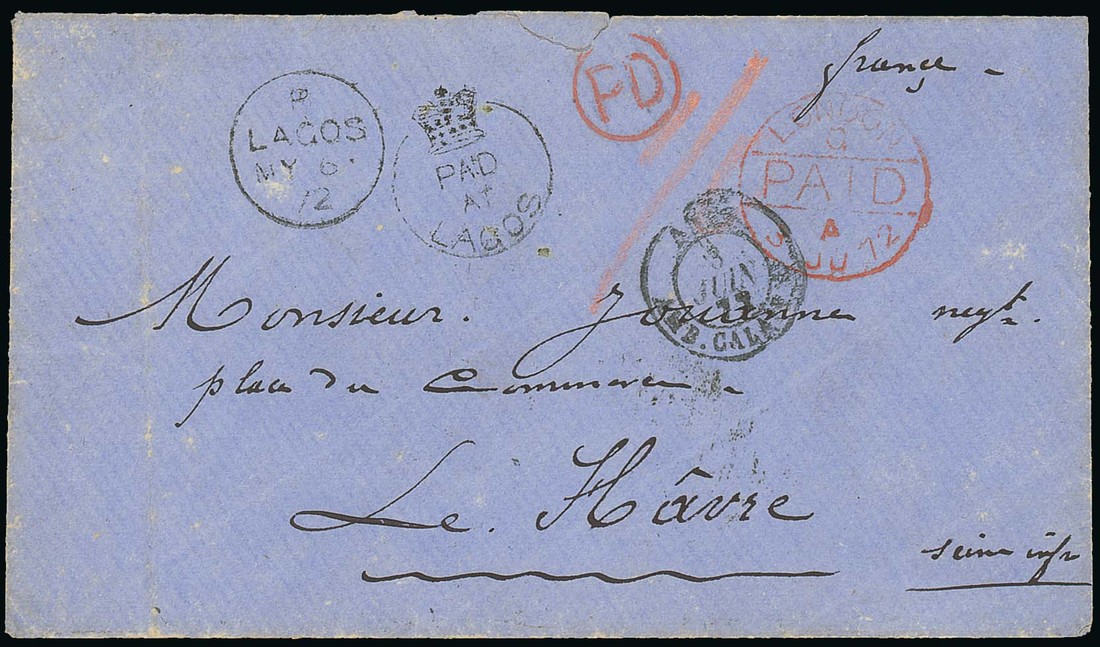 france -
P
LAGOS
MY 6
72
PAID
AT
LAGOS
PD
LONDON
PAID
A
3 JU 72
3
JUIN
AMB. CALAIS
Monsieur. Jouanne negt.
place du Commerce -
Le. Hâvre
Seine infre